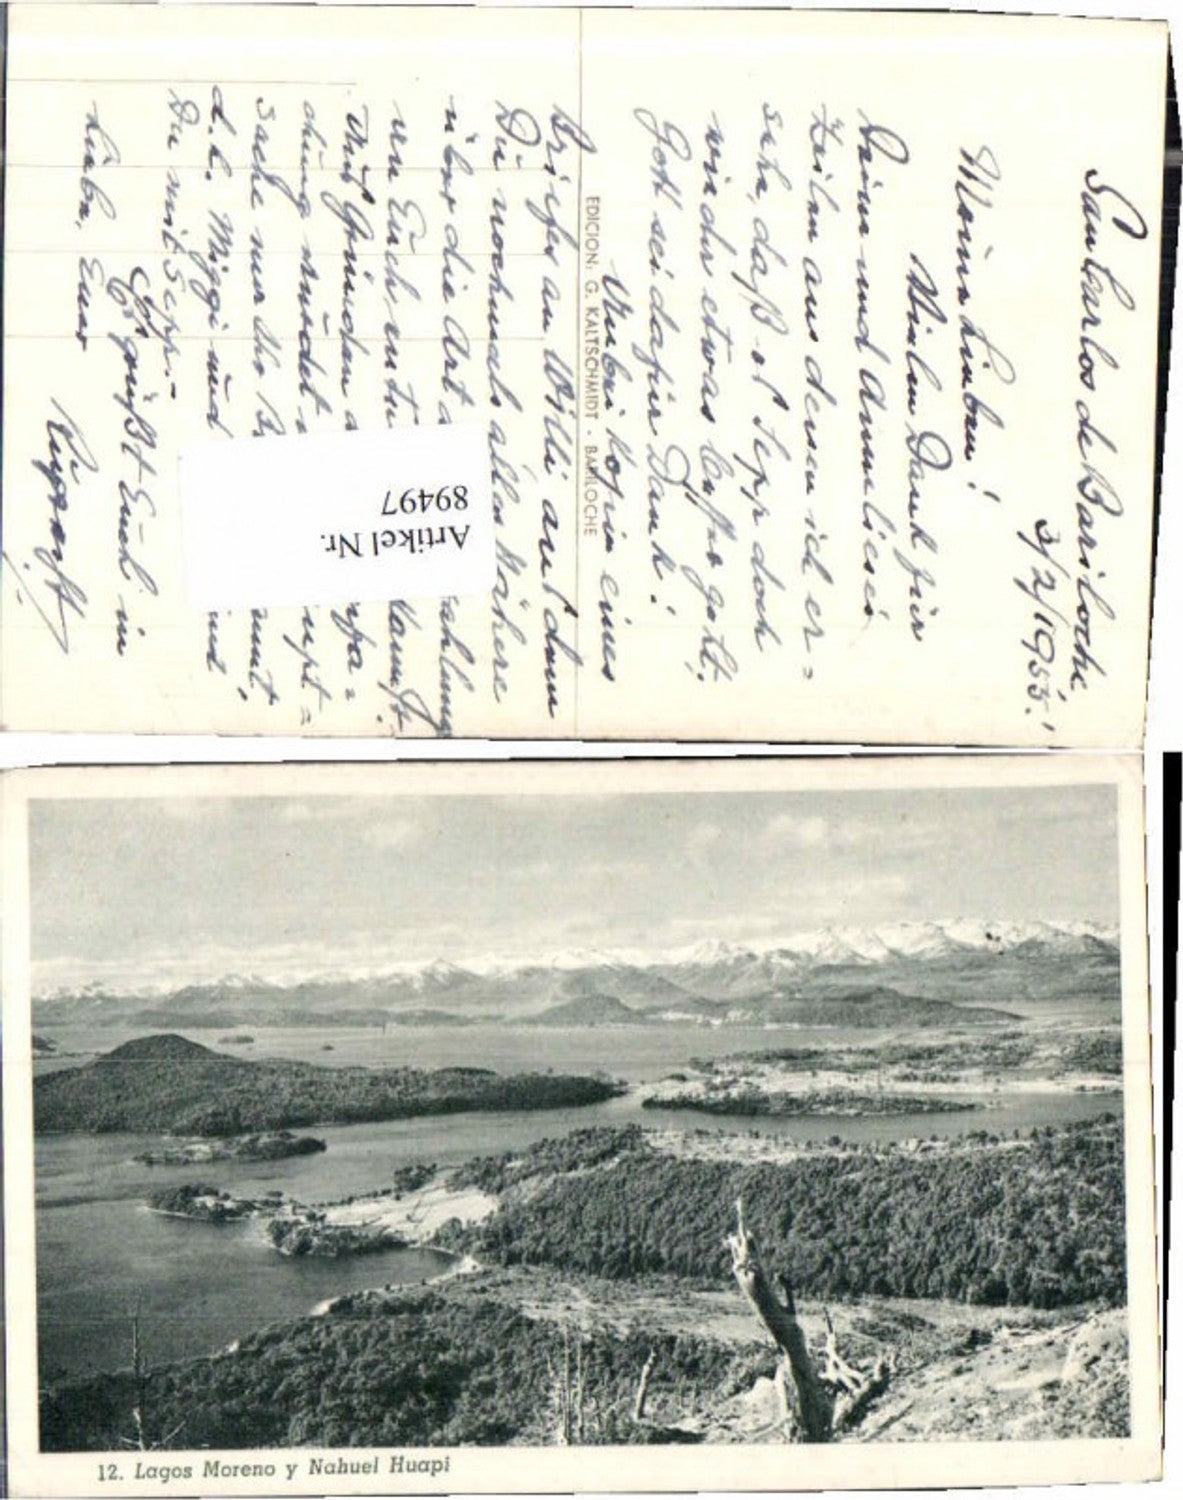 San Carlos de Bariloche,
3/2/1955.!
Meine Lieben!
Vielen Dank für
Deine und Annelieses
Zeilen aus denen ich er=
sehe, daß es Sepp doch
wieder etwas besser geht.
Gott sei dafür Dank!
Anbei Kopie eines
Briefes an Willi aus dem
Du nochmals alles Nähere
über die Art d
ahlung
von Euch entn
kannst.
Aus Gründen d
rfa=
chung würdet
upt=
sache nur Ihr B
annt,
d.h. Miggi und
und
Du mit Sepp.-
Es grüßt Euch in
Liebe, Euer
EDICION: G. KALTSCHMIDT - BARILOCHE
Artikel Nr.
89497
12. Lagos Moreno y Nahuel Huapi